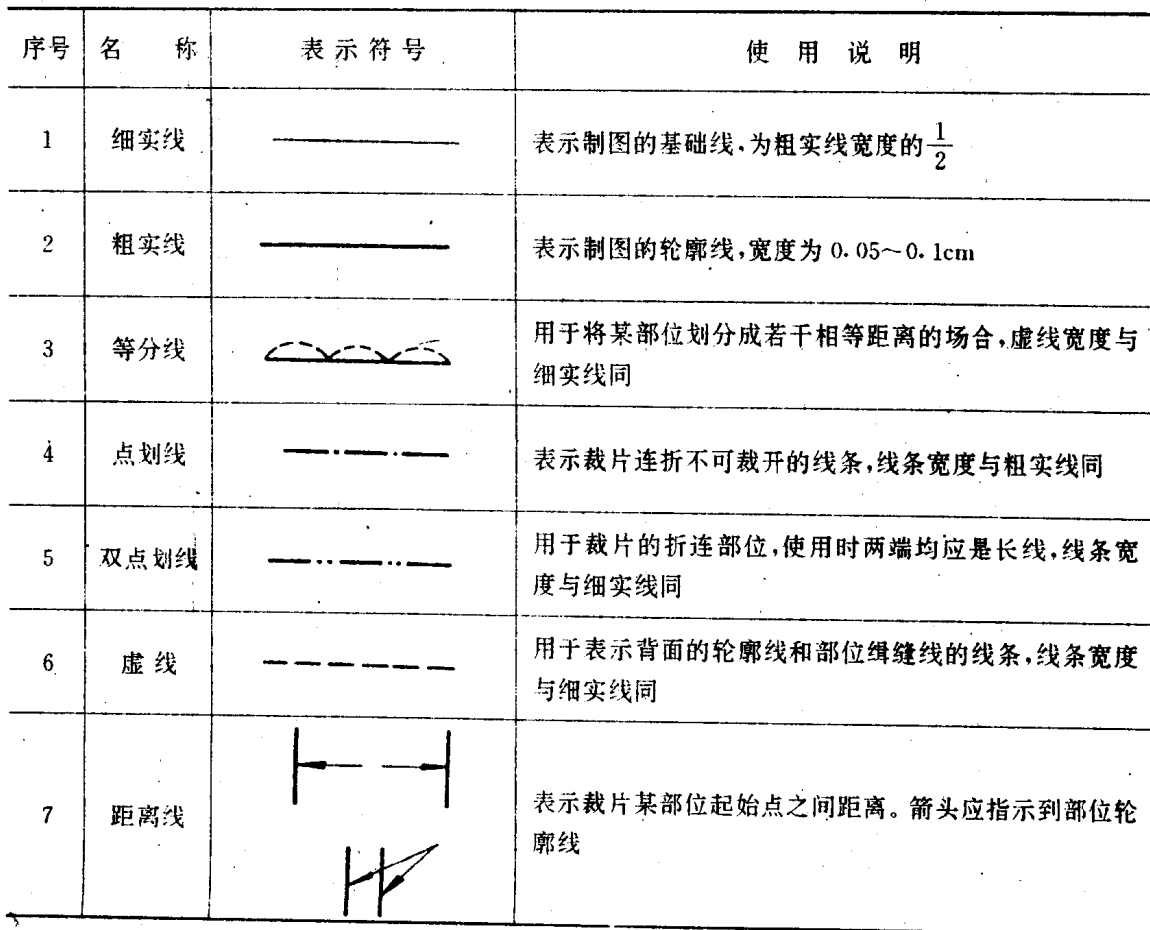 序号 名 称 表示符号 使 用 说 明
1 细实线 表示制图的基础线,为粗实线宽度的1/2
2 粗实线 表示制图的轮廓线,宽度为 0.05~0.1cm
3 等分线 用于将某部位划分成若干相等距离的场合,虚线宽度与
细实线同
4 点划线 表示裁片连折不可裁开的线条,线条宽度与粗实线同
5 双点划线 用于裁片的折连部位,使用时两端均应是长线,线条宽
度与细实线同
6 虚线 用于表示背面的轮廓线和部位缉缝线的线条,线条宽度
与细实线同
7 距离线 表示裁片某部位起始点之间距离。箭头应指示到部位轮
廓线